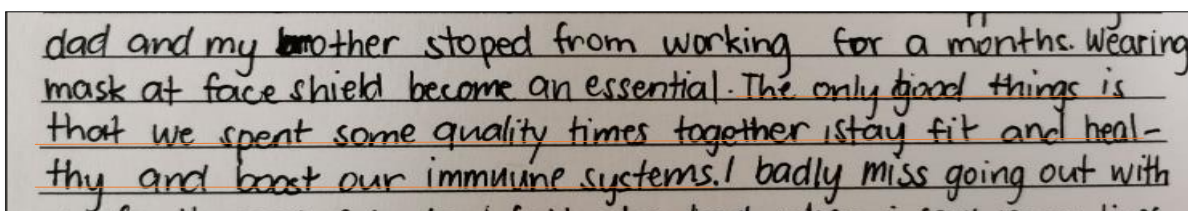 dad and my brother stoped from working for a months. Wearing
mask at face shield become an essential. The only good things is
that we spent some quality times together, stay fit and heal-
thy and boost our immuiune systems. I badly miss going out with